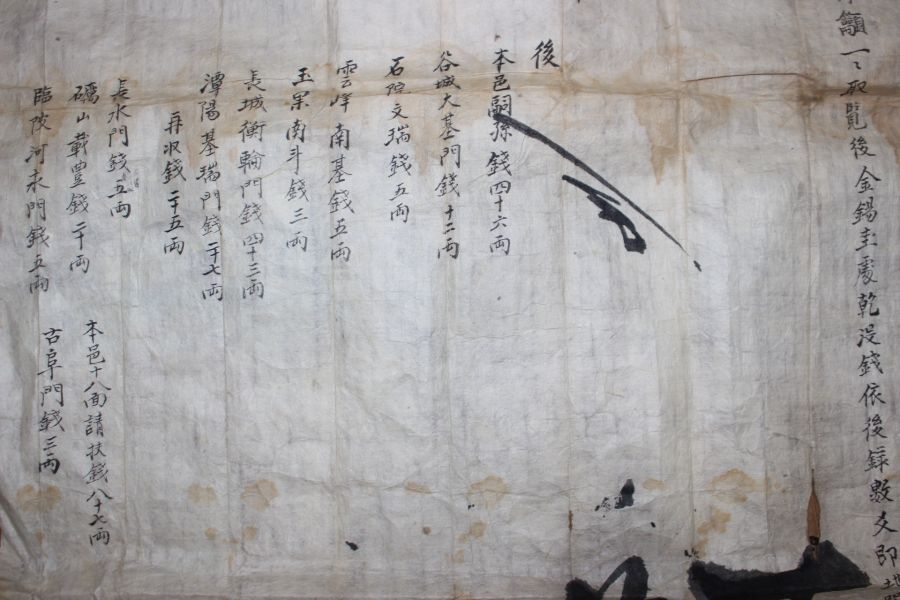 籲一一取覽後金錫圭處乾沒錢依後錄數文即
後
本邑嗣孫錢四十六両
谷城大基門錢十二両
石院文瑞錢五両
雲峰南基錢五両
玉果南斗錢三両
長城衡輪門錢四十三両
潭陽基瑞門錢二十七両
再収錢二十五両
長水門錢五両
礪山載豊錢二十両
臨陂河末門錢五両
本邑十八面請扶錢八十七両
古阜門錢三両